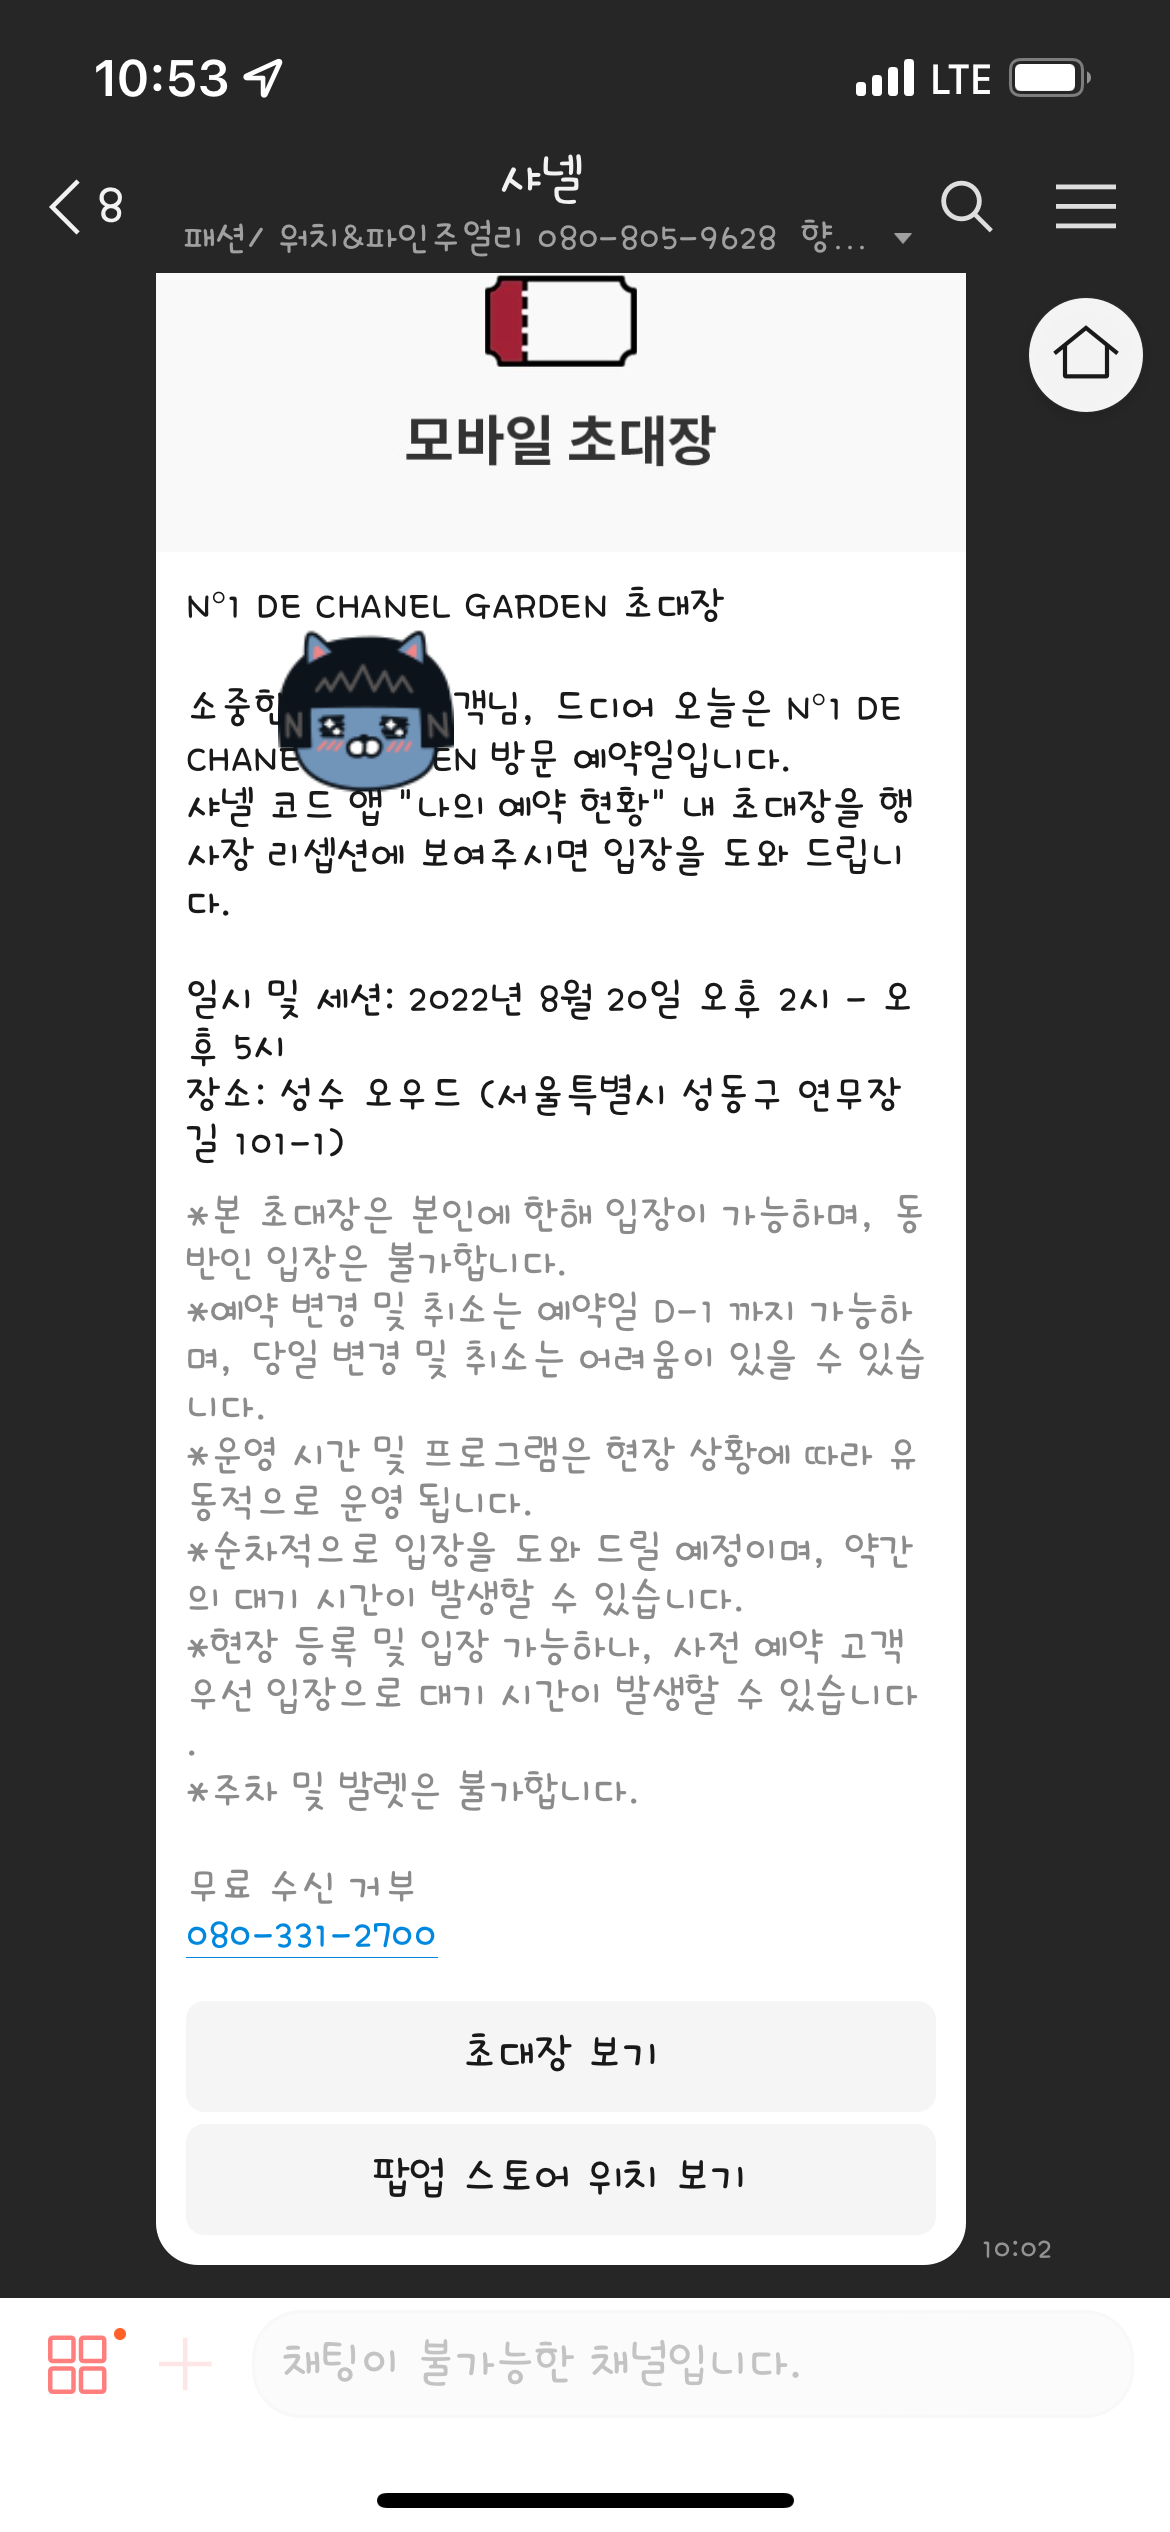 10:53
LTE
8
샤넬
패션/ 워치&파인주얼리 080-805-9628 향...
모바일 초대장
N°1 DE CHANEL GARDEN 초대장
소중한 객님, 드디어 오늘은 N°1 DE
CHANE EN 방문 예약일입니다.
샤넬 코드 앱 "나의 예약 현황" 내 초대장을 행
사장 리셉션에 보여주시면 입장을 도와 드립니
다.
일시 및 세션: 2022년 8월 20일 오후 2시 - 오
후 5시
장소: 성수 오우드 (서울특별시 성동구 연무장
길 101-1)
*본 초대장은 본인에 한해 입장이 가능하며, 동
반인 입장은 불가합니다.
*예약 변경 및 취소는 예약일 D-1 까지 가능하
며, 당일 변경 및 취소는 어려움이 있을 수 있습
니다.
*운영 시간 및 프로그램은 현장 상황에 따라 유
동적으로 운영 됩니다.
*순차적으로 입장을 도와 드릴 예정이며, 약간
의 대기 시간이 발생할 수 있습니다.
*현장 등록 및 입장 가능하나, 사전 예약 고객
우선 입장으로 대기 시간이 발생할 수 있습니다
.
*주차 및 발렛은 불가합니다.
무료 수신 거부
080-331-2700
초대장 보기
팝업 스토어 위치 보기
10:02
채팅이 불가능한 채널입니다.